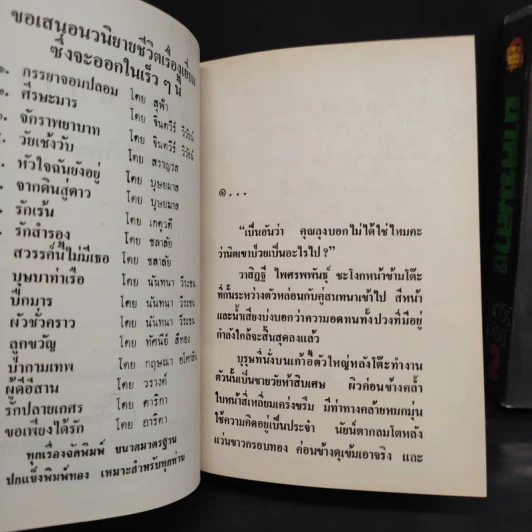 ขอเสนอนวนิยายชีวิตเรื่องเยี่ยม
ซึ่งจะออกในเร็ว ๆ นี้
๑. กรรยาจอมปลอม โดย สุฟ้า
๒. ศีรษะมาร โดย จินตวีร์ วิวัธน์
จักราพยาบาท โดย จินตวีร์ วิวัธน์
วัยเช้งวับ โดย สราญรส
หัวใจฉันยังอยู่ โดย บุษยมาส
จากดินสู่ดาว โดย บุษยมาส
รักเร้น โดย เกตุวดี
รักสำรอง โดย ชลาลัย
สวรรค์นี้ไม่มีเธอ โดย ชลาลัย
บุษบาท่าเรือ โดย นันทนา วีระชน
ปีกมาร โดย นันทนา วีระชน
ผัวชั่วคราว โดย นันทนา วีระชน
ลูกขวัญ โดย ทัศนีย์ สีทอง
บ่ากามเทพ โดย กฤษณา
ผู้ดีอีสาน โดย วรางค์
รักปลายเกศร โดย ดาริกา
ขอเพียงได้รัก โดย ดาริกา
ทุกเรื่องจัดพิมพ์ ขนาดมาตรฐาน
ปกแข็งพิมพ์ทอง เหมาะสำหรับทุกท่าน
๑...
“เป็นอันว่า คุณลุงบอกไม่ได้ใช่ไหมคะ
ว่าพิตเขาป่วยเป็นอะไรไป ?”
วาสิฏฐี ไพศรพพันธุ์ ชะโงกหน้าข้ามโต๊ะ
ที่กั้นระหว่างตัวหล่อนกับคู่สนทนาเข้าไป สีหน้า
และน้ำเสียงบ่งบอกว่าความอดทนทั้งปวงที่มีอยู่
กำลังใกล้จะสิ้นสุดลงแล้ว
บุรุษที่นั่งบนเก้าอี้ตัวใหญ่หลังโต๊ะทำงาน
ตัวนั้นเป็นชายวัยห้าสิบเศษ ผิวค่อนข้างคล้ำ
ใบหน้าสี่เหลี่ยมเคร่งขรึม มีท่าทางคล้ายหมกมุ่น
ใช้ความคิดอยู่เป็นประจำ นัยน์ตากลมโตหลัง
แว่นขาวกรอบทอง ค่อนข้างดุเข้มเอาจริง และ